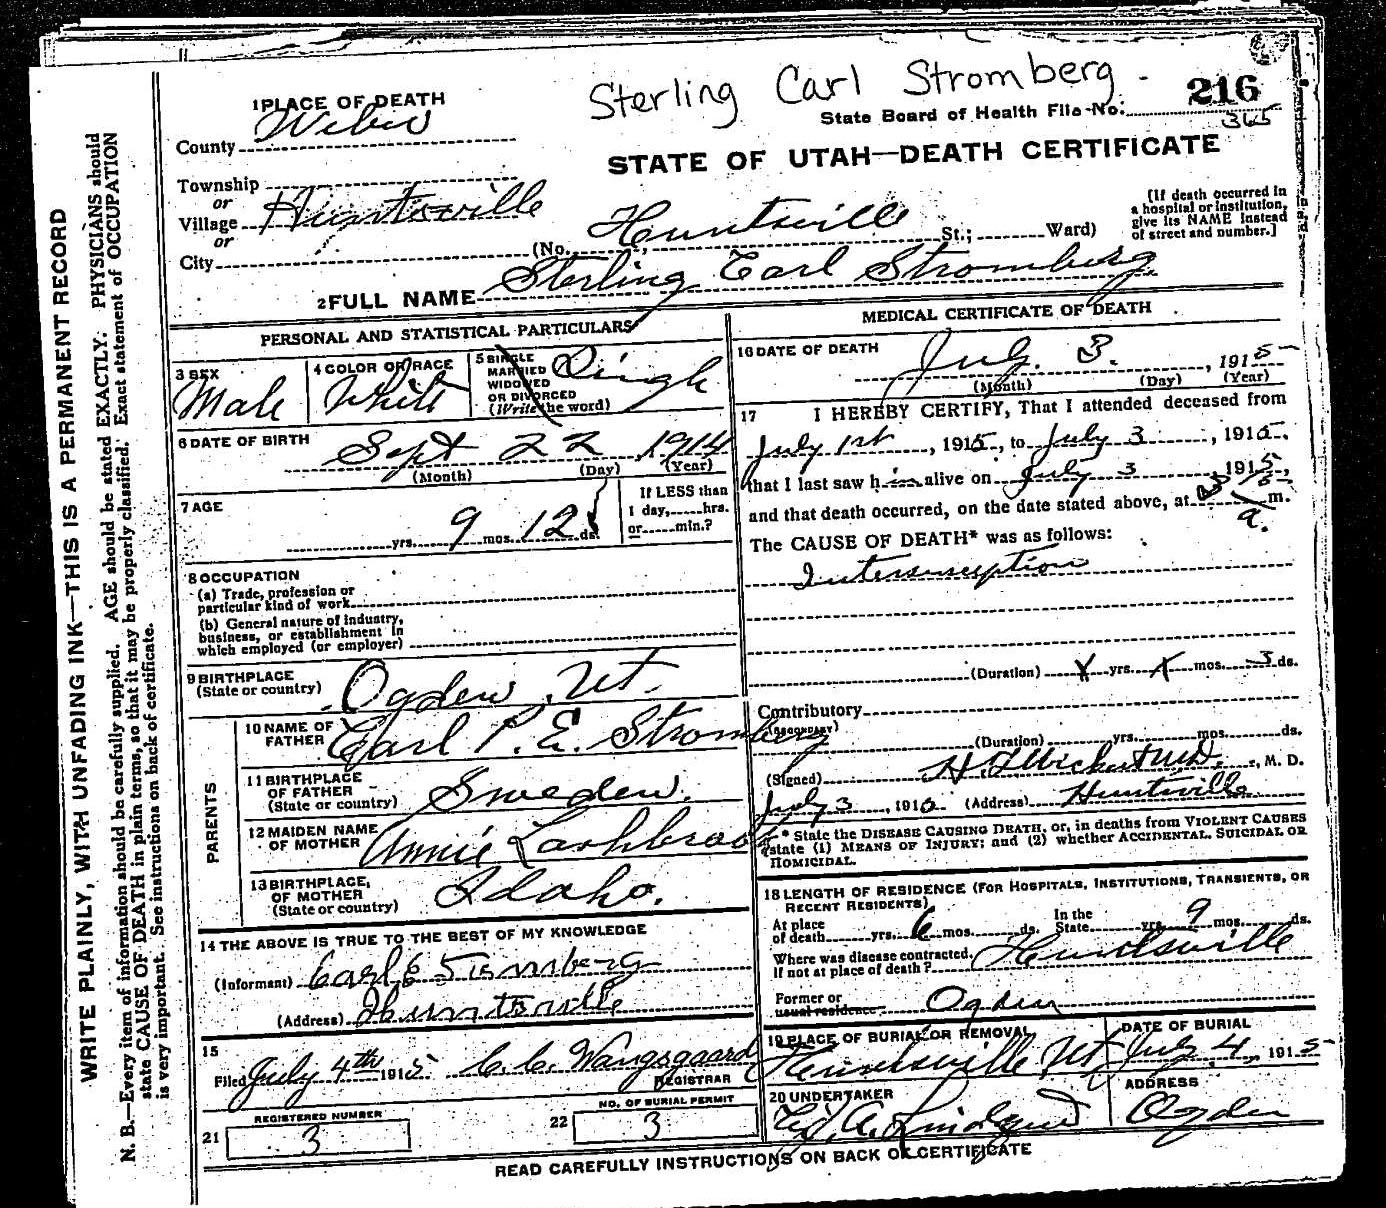 Sterling Carl Stromberg.
216
State Board of Health File No.
365
STATE OF UTAH—DEATH CERTIFICATE
1 PLACE OF DEATH
County Weber
Township
or
Village Huntsville
or
City
(No. Huntsville St.; Ward)
[If death occurred in a hospital or institution, give its NAME instead of street and number.]
2 FULL NAME Sterling Carl Stromberg
PERSONAL AND STATISTICAL PARTICULARS
3 SEX
Male
4 COLOR OR RACE
White
5 SINGLE
MARRIED
WIDOWED
OR DIVORCED
(Write the word)
Single
6 DATE OF BIRTH
Sept 22, 1914
(Month) (Day) (Year)
7 AGE
yrs. 9 mos. 12 ds.
If LESS than
1 day, hrs.
or min.?
8 OCCUPATION
(a) Trade, profession or
particular kind of work
(b) General nature of industry,
business, or establishment in
which employed (or employer)
9 BIRTHPLACE
(State or country)
Ogden Ut.
PARENTS
10 NAME OF
FATHER
Carl P. E. Stromberg
11 BIRTHPLACE
OF FATHER
(State or country)
Sweden.
12 MAIDEN NAME
OF MOTHER
Annie Lashbrook
13 BIRTHPLACE,
OF MOTHER
(State or country)
Idaho.
14 THE ABOVE IS TRUE TO THE BEST OF MY KNOWLEDGE
(Informant) Carl E Stromberg
(Address) Huntsville
15
Filed July 4th 1915 C. C. Wangsgaard
REGISTRAR
21 REGISTERED NUMBER
3
22 NO. OF BURIAL PERMIT
3
MEDICAL CERTIFICATE OF DEATH
16 DATE OF DEATH
July 3., 1915
(Month) (Day) (Year)
17 I HEREBY CERTIFY, That I attended deceased from
July 1st, 1915, to July 3, 1915,
that I last saw him alive on July 3, 1915,
and that death occurred, on the date stated above, at m.
a.
The CAUSE OF DEATH* was as follows:
Intersusception
(Duration) X yrs. X mos. 3 ds.
Contributory
(SECONDARY)
(Duration) yrs. mos. ds.
(Signed) M.D., M. D.
July 3, 1915 (Address) Huntsville
* State the DISEASE CAUSING DEATH, or, in deaths from VIOLENT CAUSES
state (1) MEANS OF INJURY; and (2) whether ACCIDENTAL, SUICIDAL OR
HOMICIDAL.
18 LENGTH OF RESIDENCE (FOR HOSPITALS, INSTITUTIONS, TRANSIENTS, OR
RECENT RESIDENTS)
At place
of death yrs. 6 mos. ds.
In the
State yrs. 9 mos. ds.
Where was disease contracted,
if not at place of death?
Huntsville
Former or
usual residence
Ogden
19 PLACE OF BURIAL OR REMOVAL
Huntsville Ut
DATE OF BURIAL
July 4, 1915
20 UNDERTAKER
A. Lindquist
ADDRESS
Ogden
READ CAREFULLY INSTRUCTIONS ON BACK OF CERTIFICATE
WRITE PLAINLY, WITH UNFADING INK—THIS IS A PERMANENT RECORD
N. B.—Every item of information should be carefully supplied. AGE should be stated EXACTLY. PHYSICIANS should
state CAUSE OF DEATH in plain terms, so that it may be properly classified. Exact statement of OCCUPATION
is very important. See instructions on back of certificate.